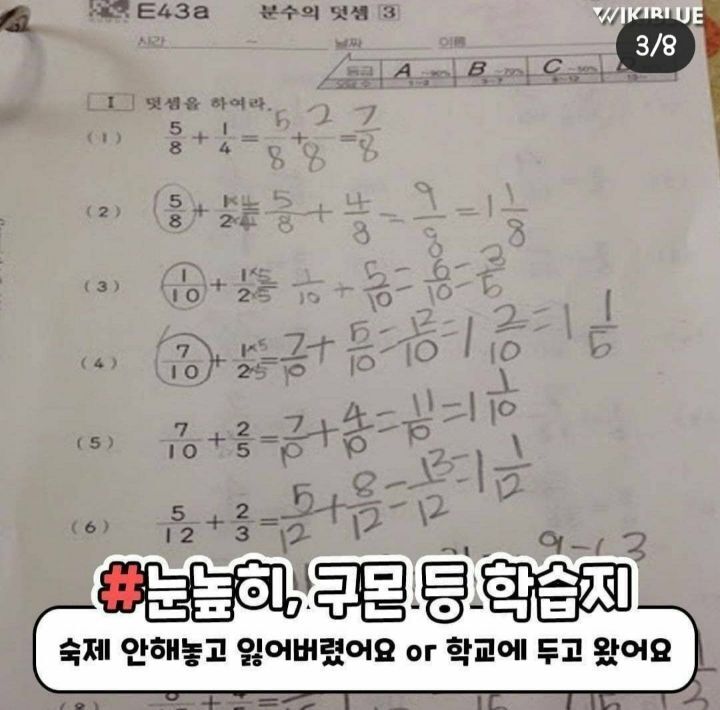 E43a 분수의 덧셈 3
WIKIBLUE
3/8
시간 ~ 날짜 이름
등급 A ~90% B ~70% C ~50% D
I 덧셈을 하여라.
(1) 5/8 + 1/4 = 5/8 + 2/8 = 7/8
(2) 5/8 + 1×4/2×4 = 5/8 + 4/8 = 9/8 = 1 1/8
(3) 1/10 + 1×5/2×5 = 1/10 + 5/10 = 6/10 = 3/5
(4) 7/10 + 1×5/2×5 = 7/10 + 5/10 = 12/10 = 1 2/10 = 1 1/5
(5) 7/10 + 2/5 = 7/10 + 4/10 = 11/10 = 1 1/10
(6) 5/12 + 2/3 = 5/12 + 8/12 = 13/12 = 1 1/12
#눈높히, 구몬 등 학습지
숙제 안해놓고 잃어버렸어요 or 학교에 두고 왔어요
(8)